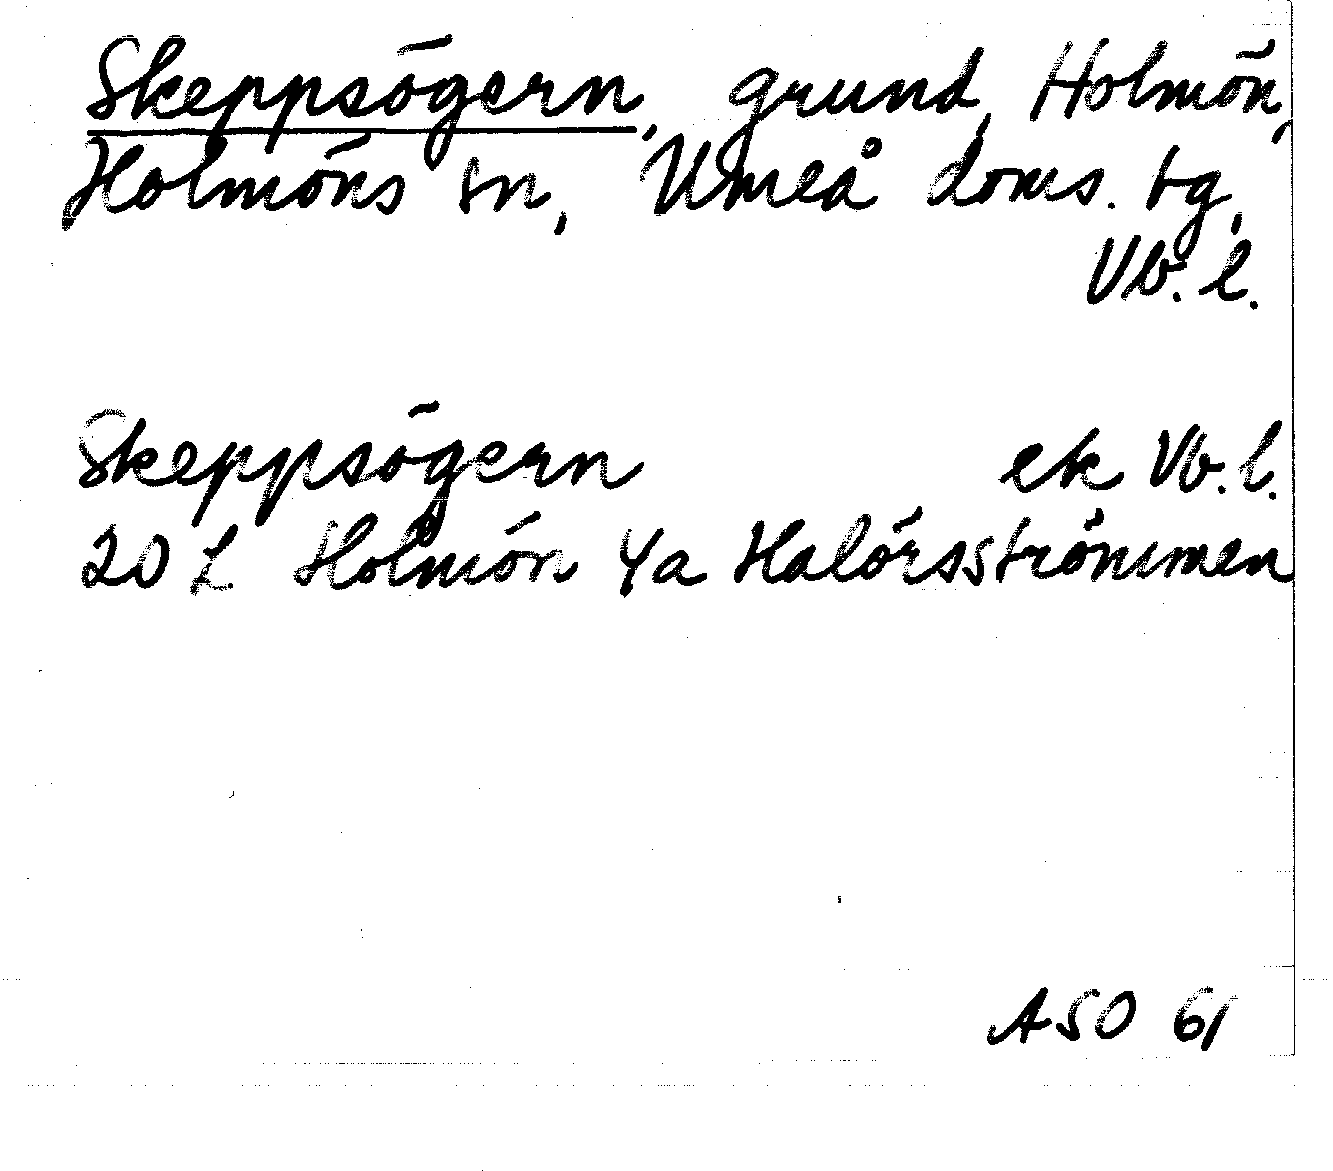 Skeppsögern, grund, Holmön,
Holmöns sn, Umeå doms. tg,
Vb. l.
Skeppsögern ek Vb. l.
20 L Holmön 4a Halörsströmmen
ASO 61